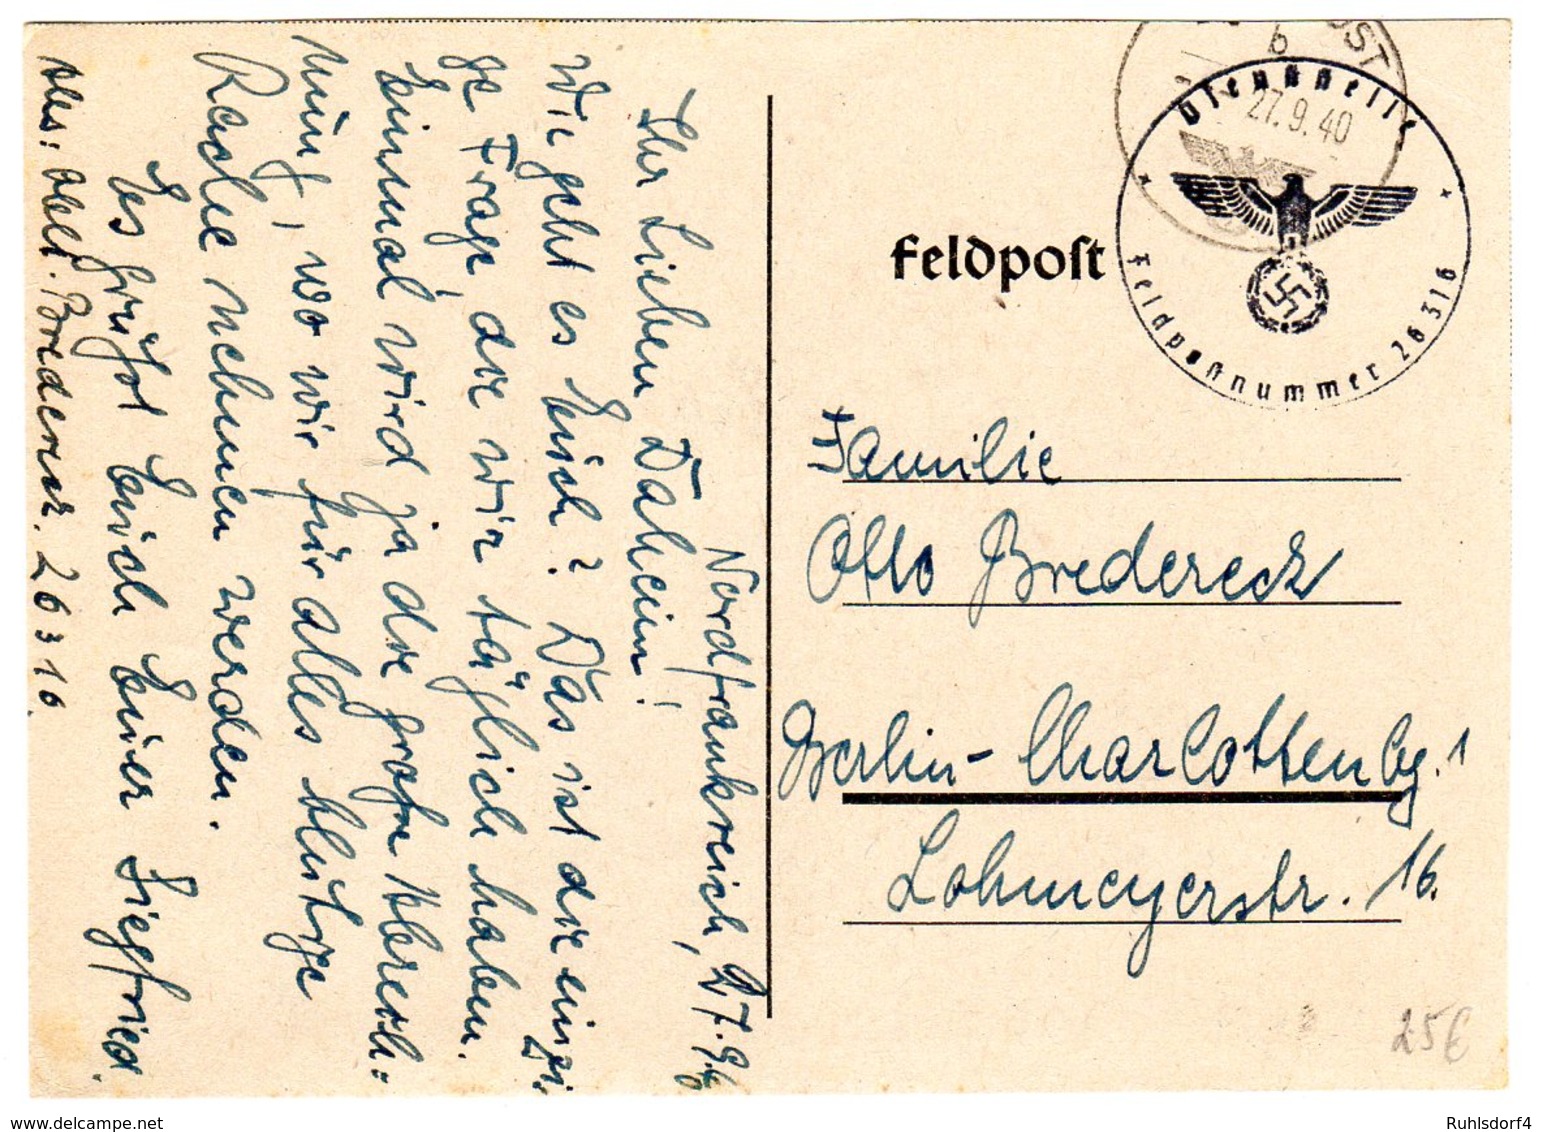 Nordfrankreich, 27.9.40
Ihr Lieben Daheim!
Wie geht es Euch? Das ist die einzi-
ge Frage, die wir täglich haben.
Einmal wird ja die große Abrech=
nung, wo wir für alles blutige
Rache nehmen werden.
Es grüßt Euch Euer Siegfried.
Abs: Bredereck. 26316.
Feldpost
b
27.9.40
Dienststelle
Feldpostnummer 26316
Familie
Otto Bredereck
Berlin-Charlottenbg. 1
Lohmeyerstr. 16.
25€
www.delcampe.net
Ruhlsdorf4